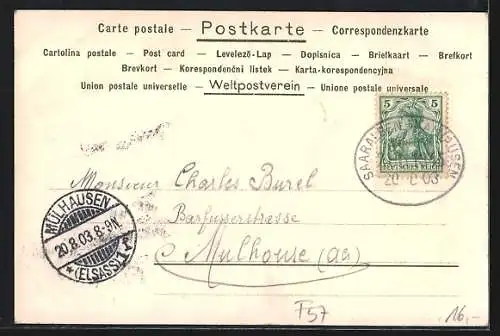 Carte postale — Postkarte — Correspondenzkarte
Cartolina postale — Post card — Levelező-Lap — Dopisnica — Briefkaart — Brefkort
Brevkort — Korespondenční lístek — Karta-korespondencyjna
Union postale universelle — Weltpostverein — Unione postale universale
5 5
DEUTSCHES REICH
20 8 03
Monsieur Charles Burel
Barfuserstrasse
Mulhouse
MÜLHAUSEN
20.8.03.8-9N.
*(ELSASS)1
F57
16,-